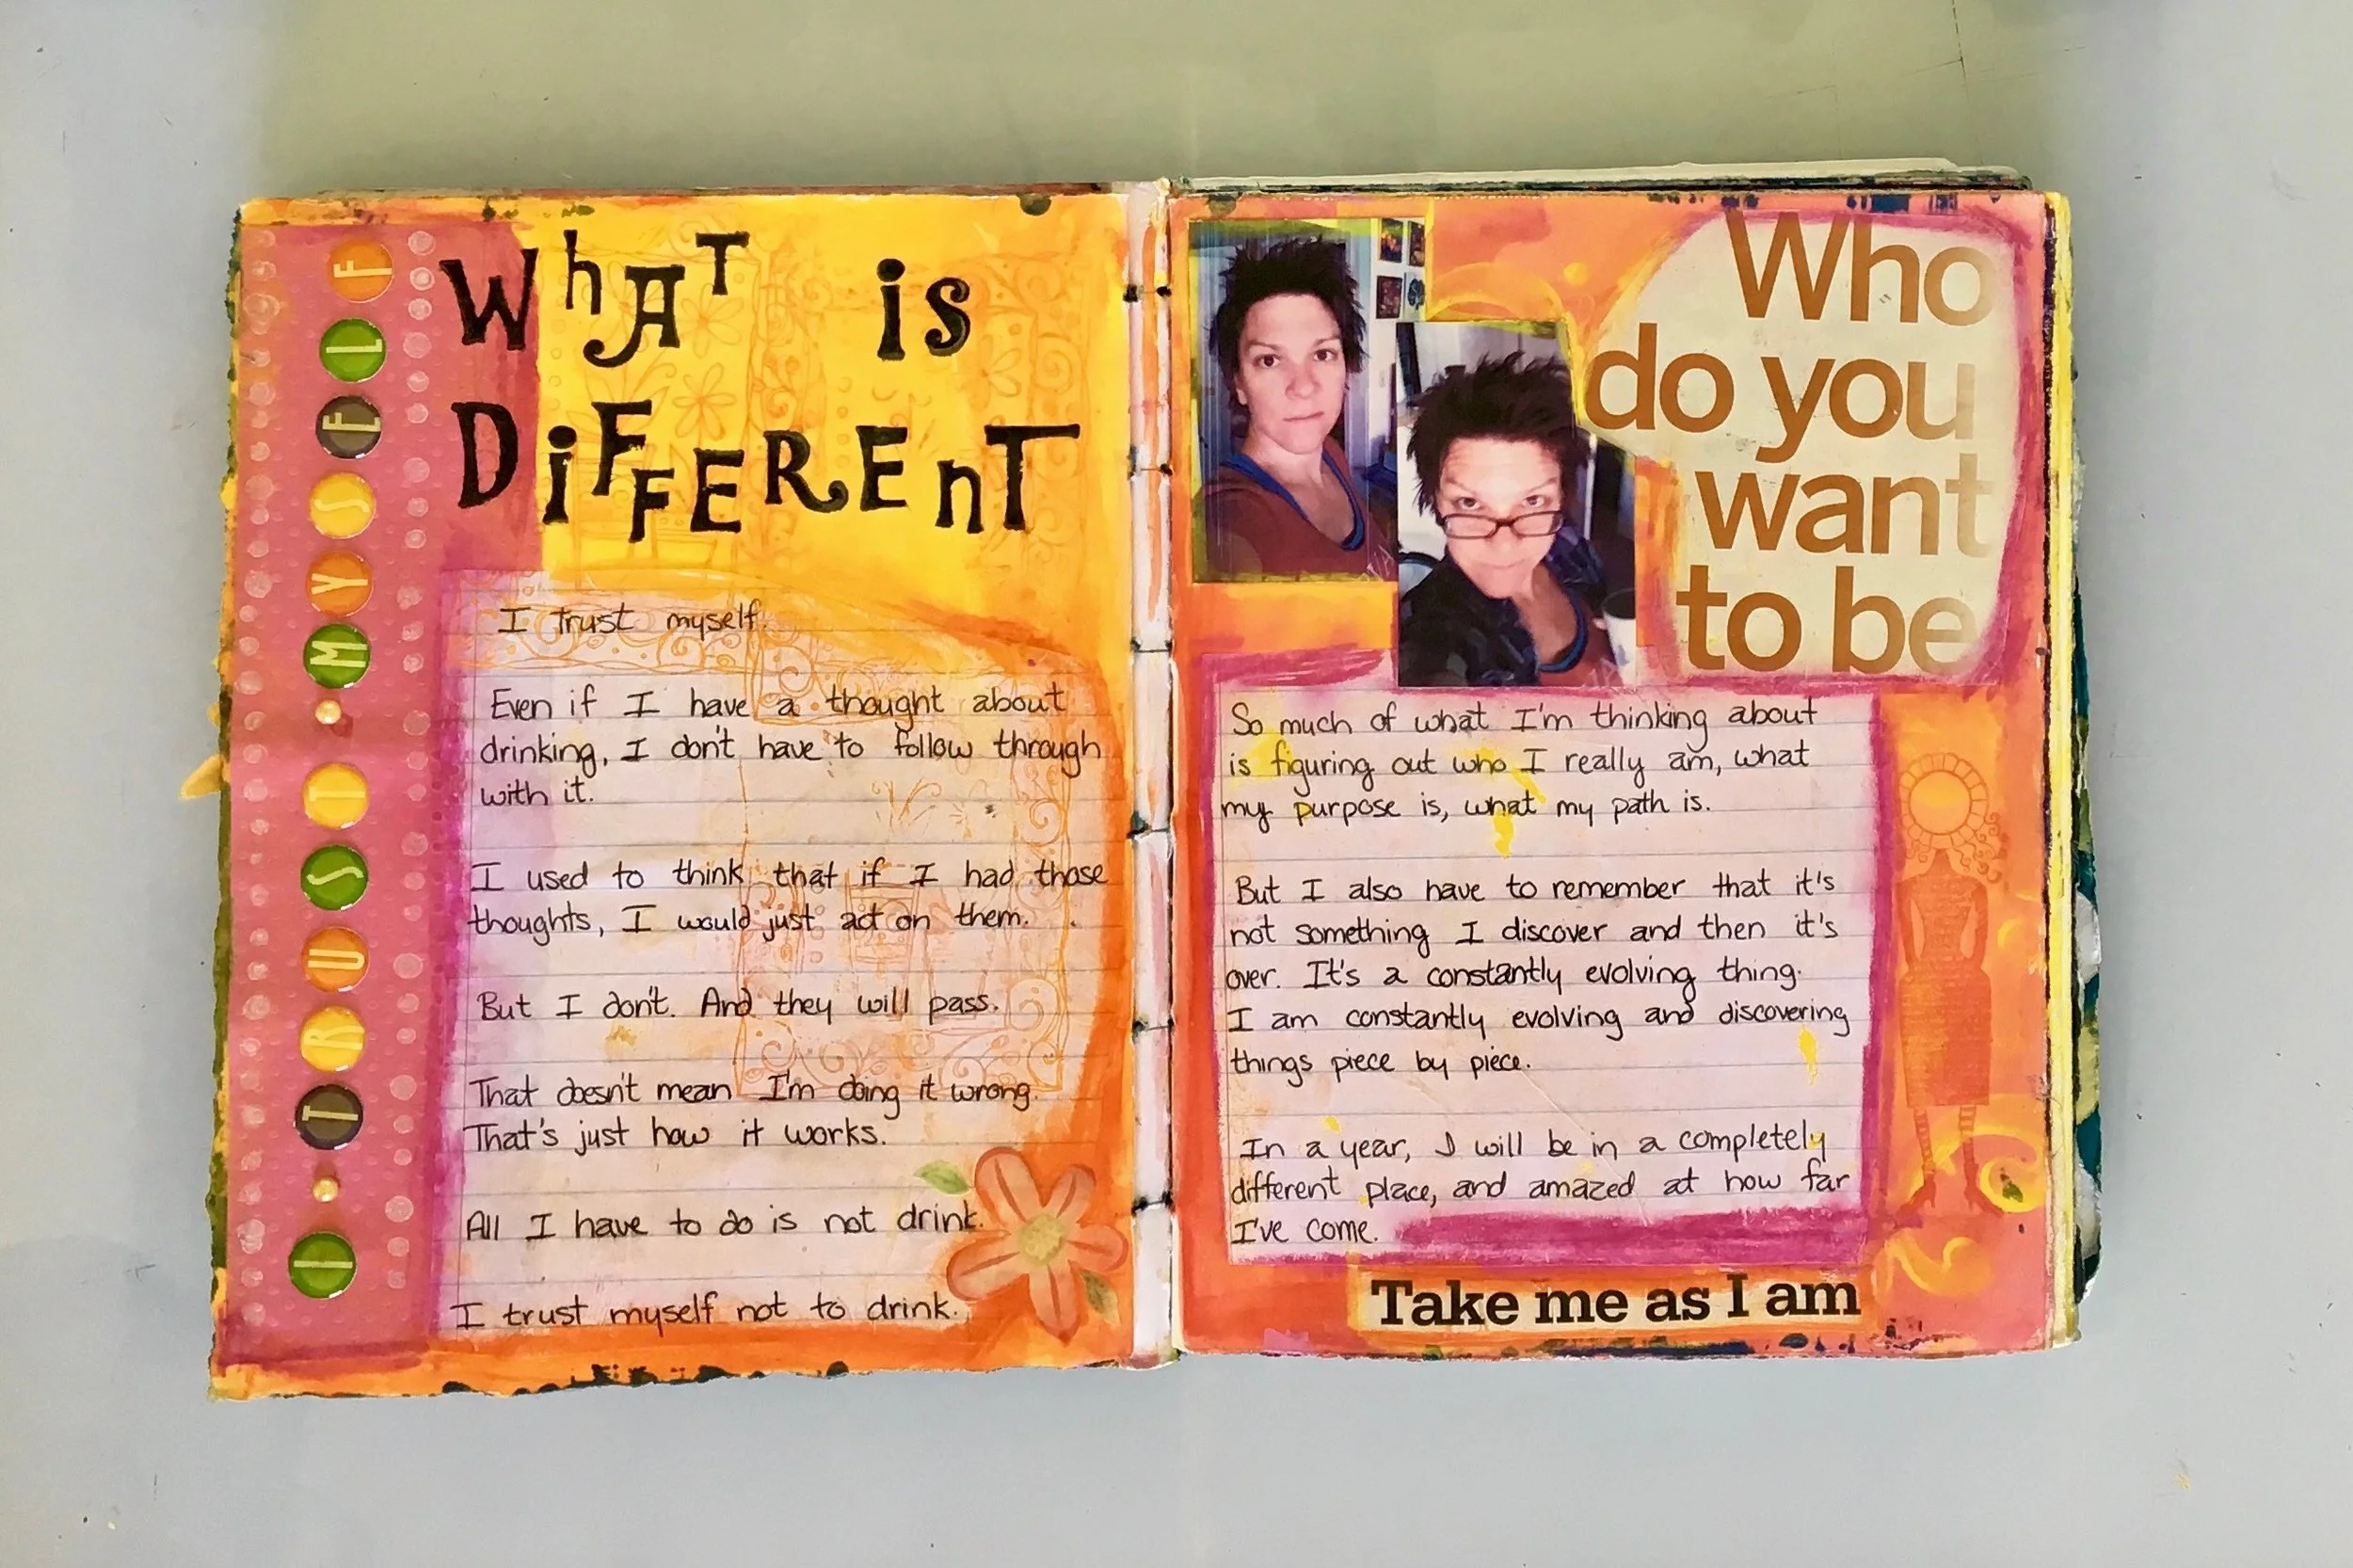 I TRUST MYSELF
WhAT is
DiFFEREnT
I trust myself.
Even if I have a thought about
drinking, I don't have to follow through
with it.
I used to think that if I had those
thoughts, I would just act on them.
But I don't. And they will pass.
That doesn't mean I'm doing it wrong.
That's just how it works.
All I have to do is not drink.
I trust myself not to drink.
Who
do you
want
to be
So much of what I'm thinking about
is figuring out who I really am, what
my purpose is, what my path is.
But I also have to remember that it's
not something I discover and then it's
over. It's a constantly evolving thing.
I am constantly evolving and discovering
things piece by piece.
In a year, I will be in a completely
different place, and amazed at how far
I've come.
Take me as I am